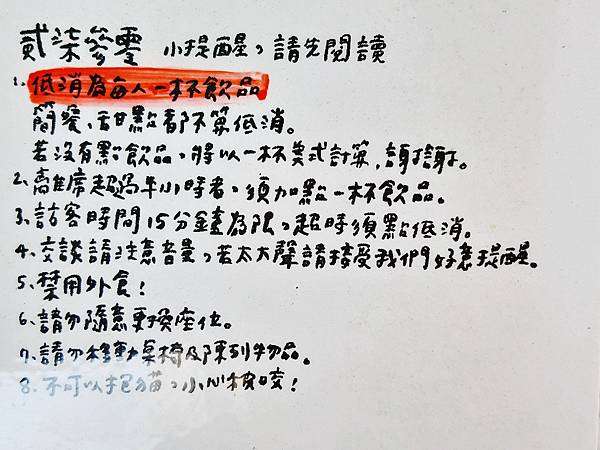 貳柒參零 小提醒，請先閱讀
1. 低消為每人一杯飲品
簡餐、甜點都不算低消。
若沒有點飲品，將以一杯美式計算，謝謝。
2、離席超過半小時者，須加點一杯飲品。
3、訪客時間15分鐘為限，超時須點低消。
4、交談請注意音量，若太大聲請接受我們好意提醒。
5、禁用外食！
6、請勿隨意更換座位。
7、請勿移動桌椅及陳列物品。
8、不可以抱貓，小心被咬！